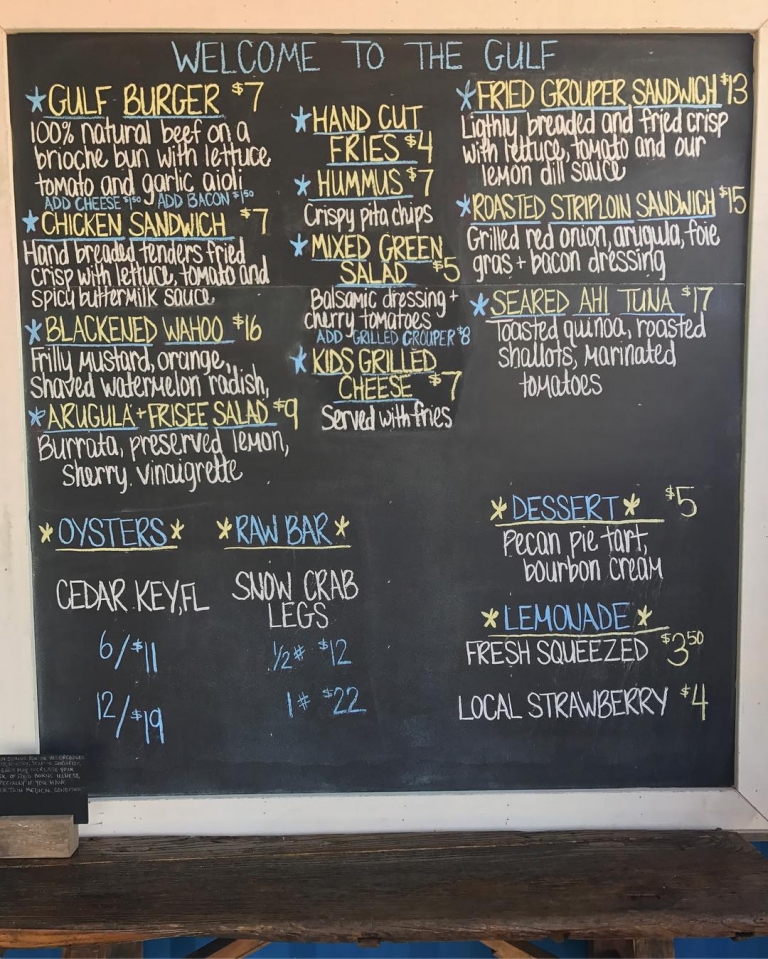 WELCOME TO THE GULF
GULF BURGER $7
100% natural beef on a
brioche bun with lettuce
tomato and garlic aioli
ADD CHEESE $1.50 ADD BACON $1.50
CHICKEN SANDWICH $7
Hand breaded tenders fried
crisp with lettuce, tomato and
spicy buttermilk sauce
BLACKENED WAHOO $16
Frilly mustard, orange,
shaved watermelon radish,
ARUGULA + FRISEE SALAD $9
Burrata, preserved lemon,
Sherry vinaigrette
HAND CUT
FRIES $4
HUMMUS $7
Crispy pita chips
MIXED GREEN
SALAD $5
Balsamic dressing +
cherry tomatoes
ADD GRILLED GROUPER $8
KIDS GRILLED
CHEESE $7
Served with fries
FRIED GROUPER SANDWICH $13
Ligthly breaded and fried crisp
with lettuce, tomato and our
lemon dill sauce
ROASTED STRIPLOIN SANDWICH $15
Grilled red onion, arugula, foie
gras + bacon dressing
SEARED AHI TUNA $17
Toasted quinoa, roasted
shallots, marinated
tomatoes
OYSTERS
CEDAR KEY, FL
6/$11
12/$19
RAW BAR
SNOW CRAB
LEGS
1/2# $12
1# $22
DESSERT $5
Pecan pie tart,
bourbon cream
LEMONADE
FRESH SQUEEZED $3.50
LOCAL STRAWBERRY $4